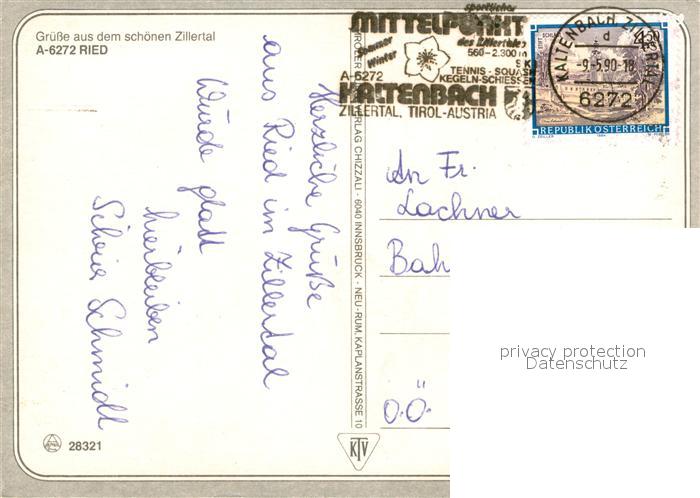 Grüße aus dem schönen Zillertal
A-6272 RIED
Herzliche Grüße
aus Ried im Zillertal
Würde glatt
hierbleiben
Schmidt
28321
TIROLER
VERLAG CHIZZALI - 6040 INNSBRUCK - NEU-RUM, KAPLANSTRASSE 10
KTV
sportlicher
MITTELPUNKT
des Zillertales
Sommer
Winter
560-2.300 m
A-6272
TENNIS - SQUASH
KEGELN-SCHIESSEN
KALTENBACH
ZILLERTAL, TIROL-AUSTRIA
KALTENBACH, ZILLERTAL
d
-9-5.90-18
6272
4.50
REPUBLIK ÖSTERREICH
An Fr.
Lachner
Bah
O.Ö.
privacy protection
Datenschutz